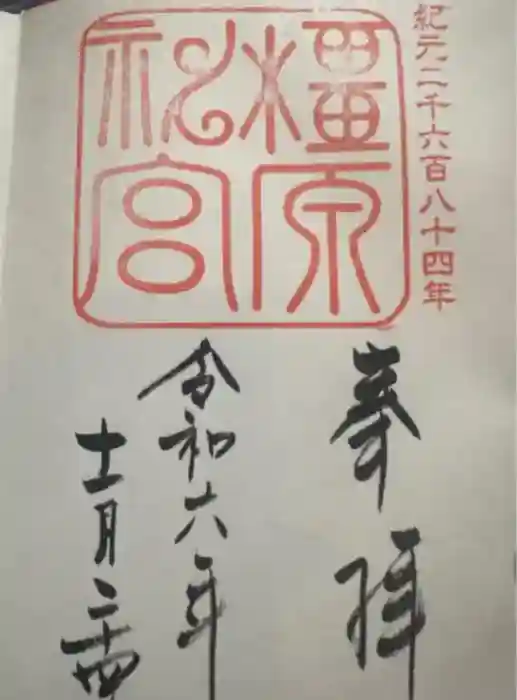 紀元二千六百八十四年
橿原
神宮
奉拝
令和六年
十一月二十四